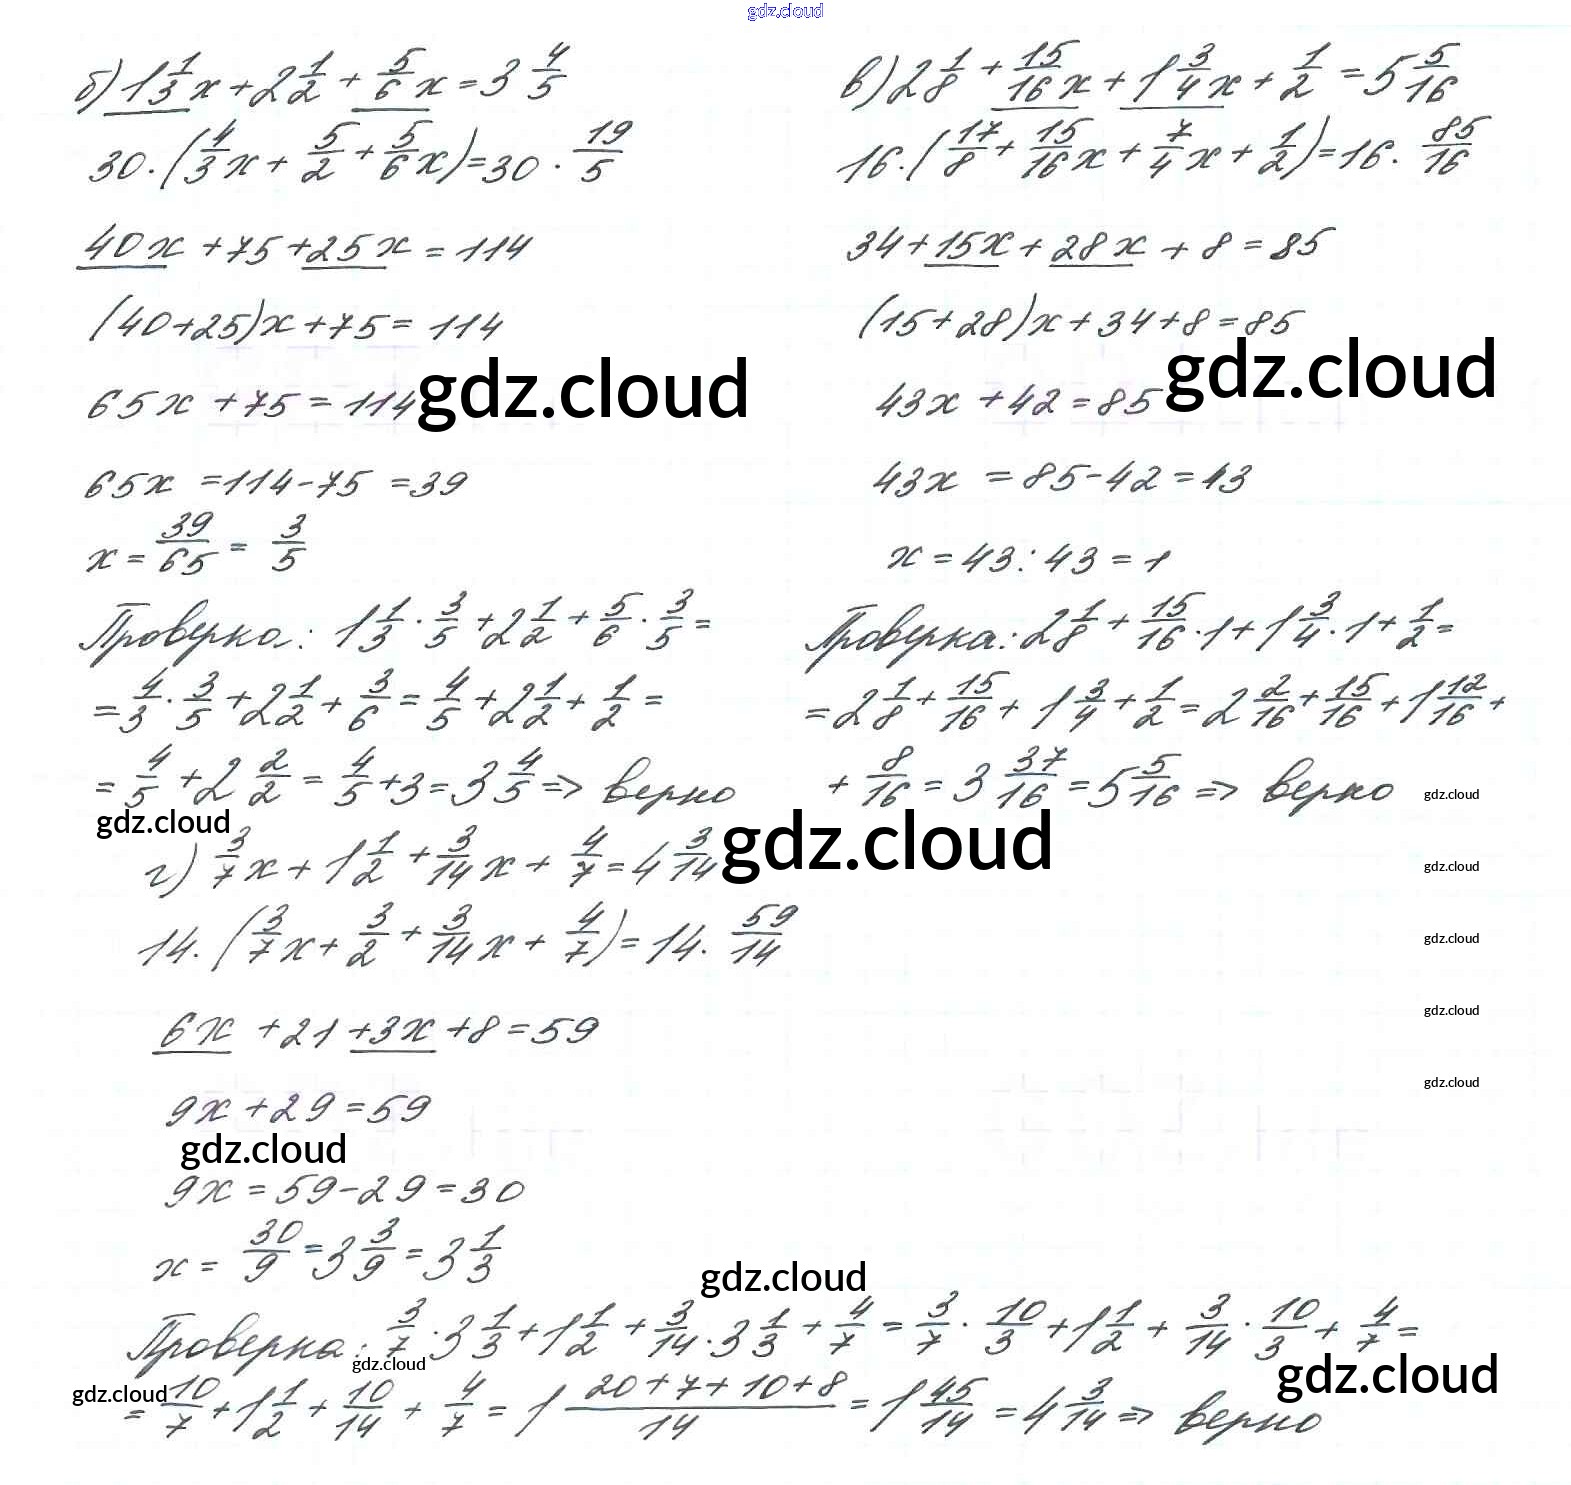 gdz.cloud
б) 1 1/3 x + 2 1/2 + 5/6 x = 3 4/5
30 · (4/3 x + 5/2 + 5/6 x) = 30 · 19/5
40x + 75 + 25x = 114
(40+25)x + 75 = 114
65x + 75 = 114
gdz.cloud
65x = 114 - 75 = 39
x = 39/65 = 3/5
Проверка: 1 1/3 · 3/5 + 2 1/2 + 5/6 · 3/5 =
= 4/3 · 3/5 + 2 1/2 + 3/6 = 4/5 + 2 1/2 + 1/2 =
= 4/5 + 2 2/2 = 4/5 + 3 = 3 4/5 => верно
в) 2 1/8 + 15/16 x + 1 3/4 x + 1/2 = 5 5/16
16 · (17/8 + 15/16 x + 7/4 x + 1/2) = 16 · 85/16
34 + 15x + 28x + 8 = 85
(15+28)x + 34 + 8 = 85
gdz.cloud
43x + 42 = 85
43x = 85 - 42 = 43
x = 43 : 43 = 1
Проверка: 2 1/8 + 15/16 · 1 + 1 3/4 · 1 + 1/2 =
= 2 1/8 + 15/16 + 1 3/4 + 1/2 = 2 2/16 + 15/16 + 1 12/16 +
+ 8/16 = 3 37/16 = 5 5/16 => верно
gdz.cloud
gdz.cloud
gdz.cloud
г) 3/7 x + 1 1/2 + 3/14 x + 4/7 = 4 3/14
gdz.cloud
14 · (3/7 x + 3/2 + 3/14 x + 4/7) = 14 · 59/14
gdz.cloud
gdz.cloud
6x + 21 + 3x + 8 = 59
gdz.cloud
9x + 29 = 59
gdz.cloud
9x = 59 - 29 = 30
x = 30/9 = 3 3/9 = 3 1/3
gdz.cloud
Проверка: 3/7 · 3 1/3 + 1 1/2 + 3/14 · 3 1/3 + 4/7 = 3/7 · 10/3 + 1 1/2 + 3/14 · 10/3 + 4/7 =
gdz.cloud
gdz.cloud
gdz.cloud
= 10/7 + 1 1/2 + 10/14 + 4/7 = 1 (20+7+10+8)/14 = 1 45/14 = 4 3/14 => верно